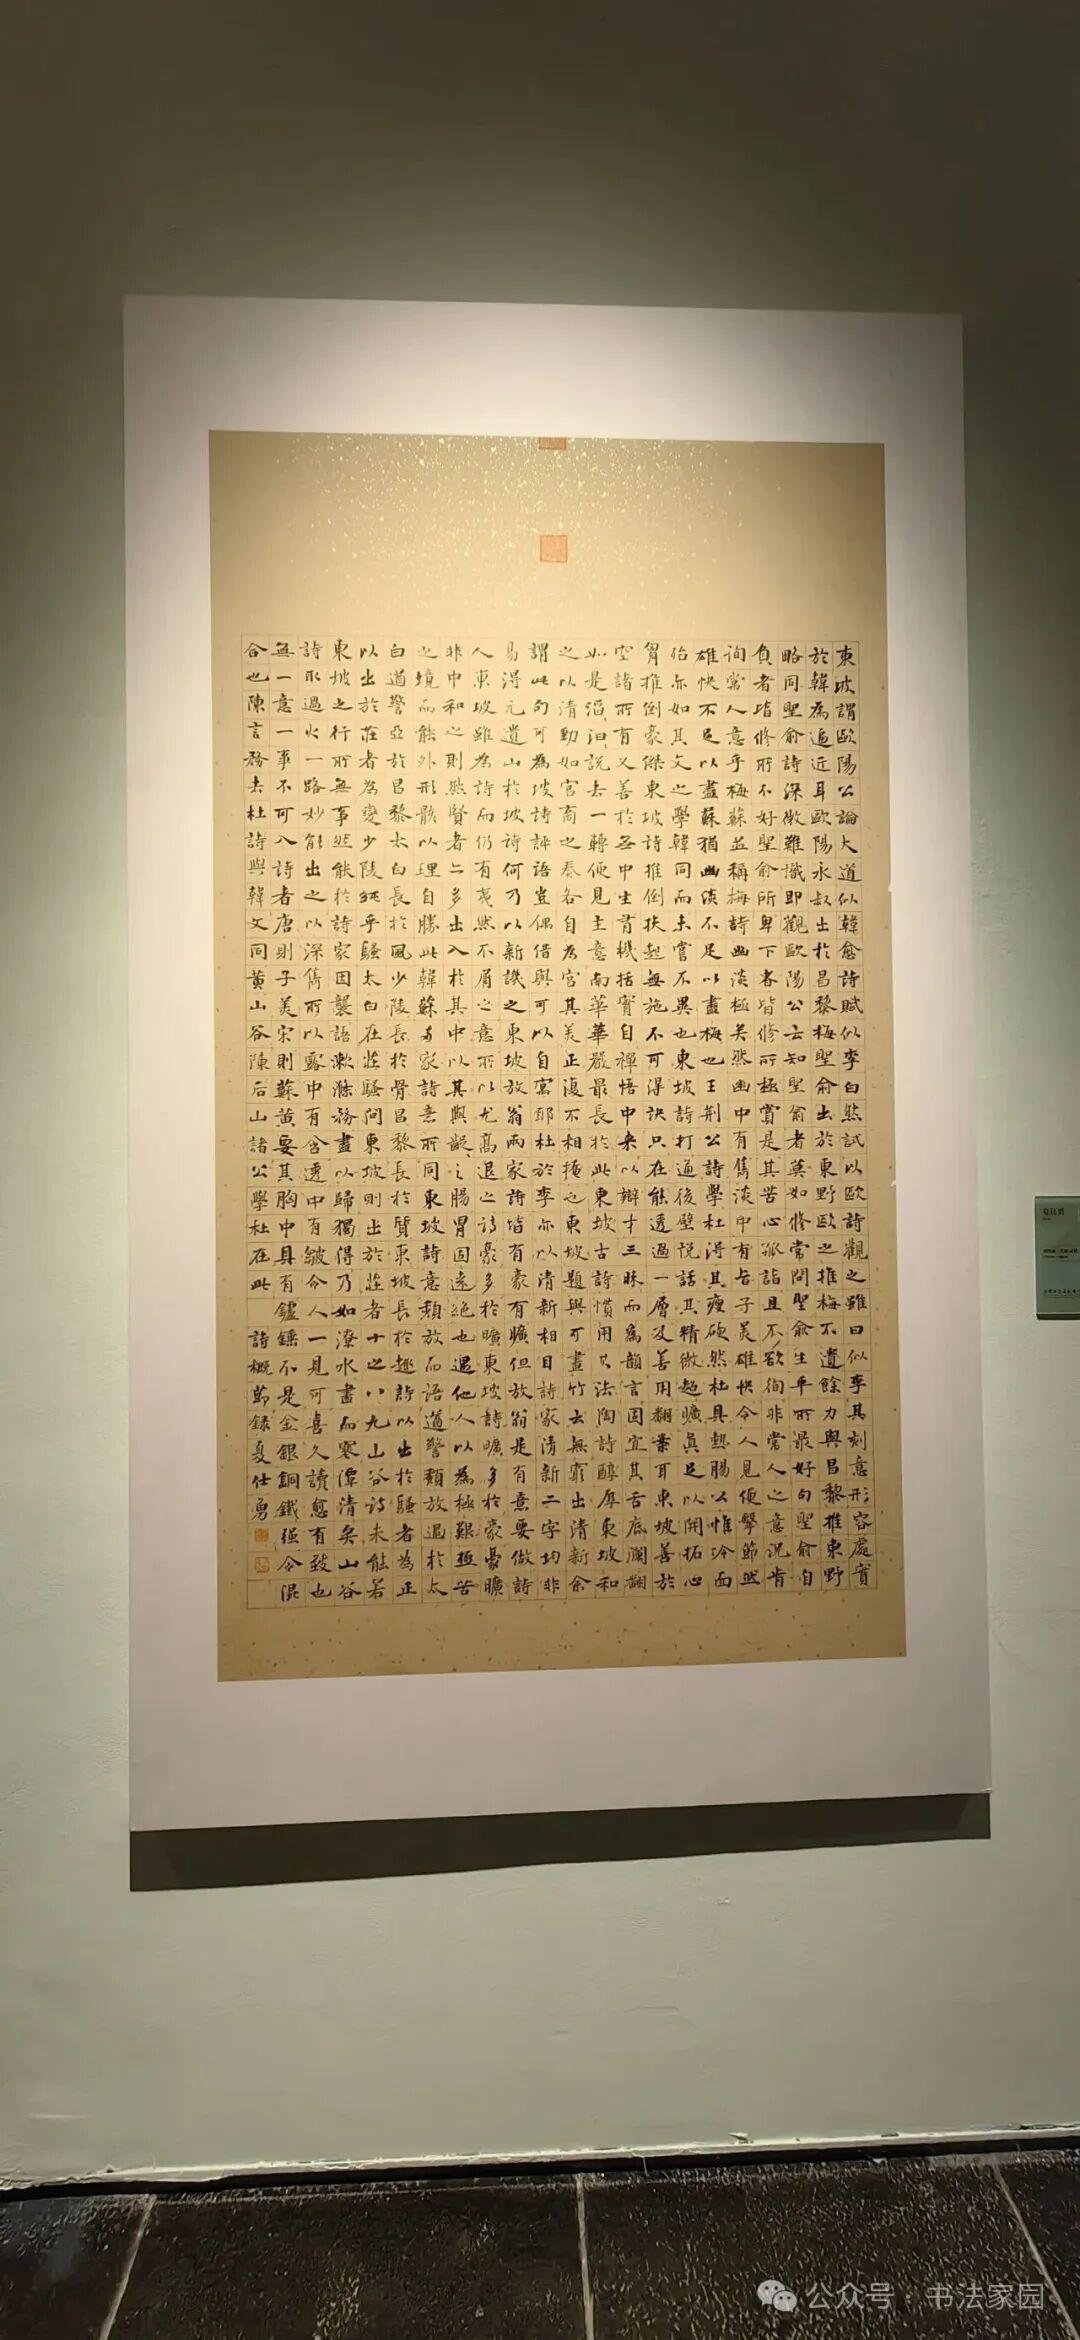 東坡謂歐陽公論大道似韓愈詩賦似李白然試以歐詩觀之雖曰似李其刻意形容處實
於韓為逼近耳歐陽永叔出於昌黎梅聖俞出於東野歐之推梅不遺餘力與昌黎推東野
略同聖俞詩深微難識即觀歐陽公云知聖俞者莫如修常問聖俞生平所最好句聖俞自
負者皆修所不好聖俞所卑下者皆修所極賞是其苦心孤詣且不欲徇非常人之意況肯
詢常人意乎梅蘇並稱梅詩幽淡極矣然幽中有雋淡中有旨子美雄快令人見便擊節然
雄快不足以盡蘇猶幽淡不足以盡梅也王荊公詩學杜得其瘦硬然杜具熱腸公惟冷面
殆亦如其文之學韓同而未嘗不異也東坡詩打通後壁說話其精微超曠真足以開拓心
胷推倒豪傑東坡詩推倒扶起無施不可得訣只在能透過一層及善用翻案耳東坡善於
空諸所有又善於無中生有機括實自禪悟中來以辯才三昧而為韻言固宜其舌底瀾翻
如是滔汩說去一轉便見主意南華華嚴最長於此東坡古詩慣用其法陶詩醇厚東坡和
之以清勁如宮商之奏各自為宮其美正復不相掩也東坡題與可畫竹云無窮出清新余
謂此句可為坡詩評語豈偶借與可以自寓耶杜於李亦以清新相目詩家清新二字均非
易得元遺山於坡詩何乃以新譏之東坡放翁兩家詩皆有豪有曠但放翁是有意要做詩
人東坡雖為詩而仍有夷然不屑之意所以尤高退之詩豪多於曠東坡詩曠多於豪豪曠
非中和之則然賢者亦多出入於其中以其與齪之腸胃固遠絕也遇他人以為極艱極苦
之境而能外形骸以理自勝此韓蘇兩家詩意所同東坡詩意頹放而語遒警頹放過於太
白遒警亞於昌黎太白長於風少陵長於骨昌黎長於質東坡長於趣詩以出於騷者為正
以出於莊者為變少陵純乎騷太白在莊騷間東坡則出於莊者十之八九山谷詩未能若
東坡之行所無事然能於詩家因襲語漱滌務盡以歸獨得乃如潦水盡而寒潭清矣山谷
詩取過火一路妙能出之以深雋所以露中有含透中有皺令人一見可喜久讀愈有致也
無一意一事不可入詩者唐則子美宋則蘇黃要其胸中具有鑪錘不是金銀銅鐵强令混
合也陳言務去杜詩與韓文同黃山谷陳后山諸公學杜在此 詩概節録夏仕勇
公众号·书法家园